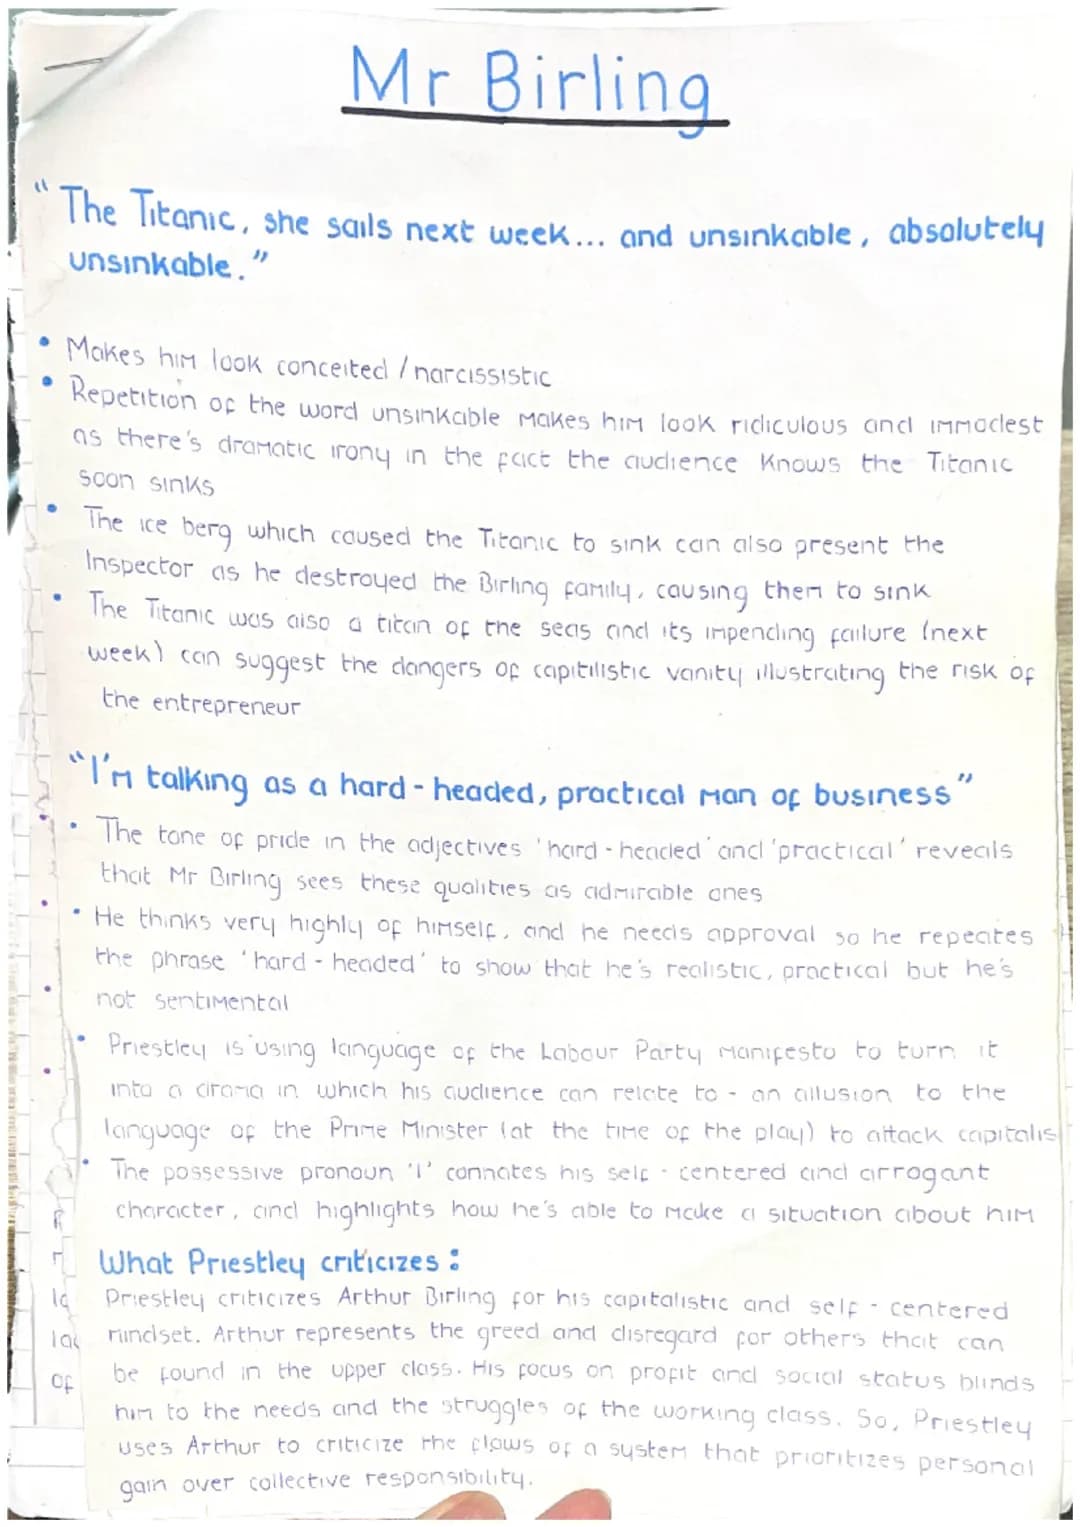 Mr Birling
"The Titanic, she sails next week... and unsinkable, absolutely
unsinkable."
• Makes him look conceited / narcissistic
• Repetition of the word unsinkable makes him look ridiculous and immodest
as there's dramatic irony in the fact the audience knows the Titanic
soon sinks
• The ice berg which caused the Titanic to sink can also present the
Inspector as he destroyed the Birling family, causing them to sink
• The Titanic was also a titan of the seas and its impending failure (next
week) can suggest the dangers of capitilistic vanity illustrating the risk of
the entrepreneur
"I'm talking as a hard-headed, practical man of business"
• The tone of pride in the adjectives 'hard-headed' and 'practical' reveals
that Mr Birling sees these qualities as admirable ones
• He thinks very highly of himself, and he needs approval so he repeates
the phrase 'hard-headed' to show that he's realistic, practical but he's
not sentimental
• Priestley is using language of the Labour Party Manifesto to turn it
into a drama in which his audience can relate to - an allusion to the
language of the Prime Minister (at the time of the play) to attack capitalis
• The possessive pronoun 'I' connotes his self-centered and arrogant
character, and highlights how he's able to make a situation about him
What Priestley criticizes:
Priestley criticizes Arthur Birling for his capitalistic and self-centered
mindset. Arthur represents the greed and disregard for others that can
be found in the upper class. His focus on profit and social status blinds
him to the needs and the struggles of the working class. So, Priestley
uses Arthur to criticize the flaws of a system that prioritizes personal
gain over collective responsibility.
of